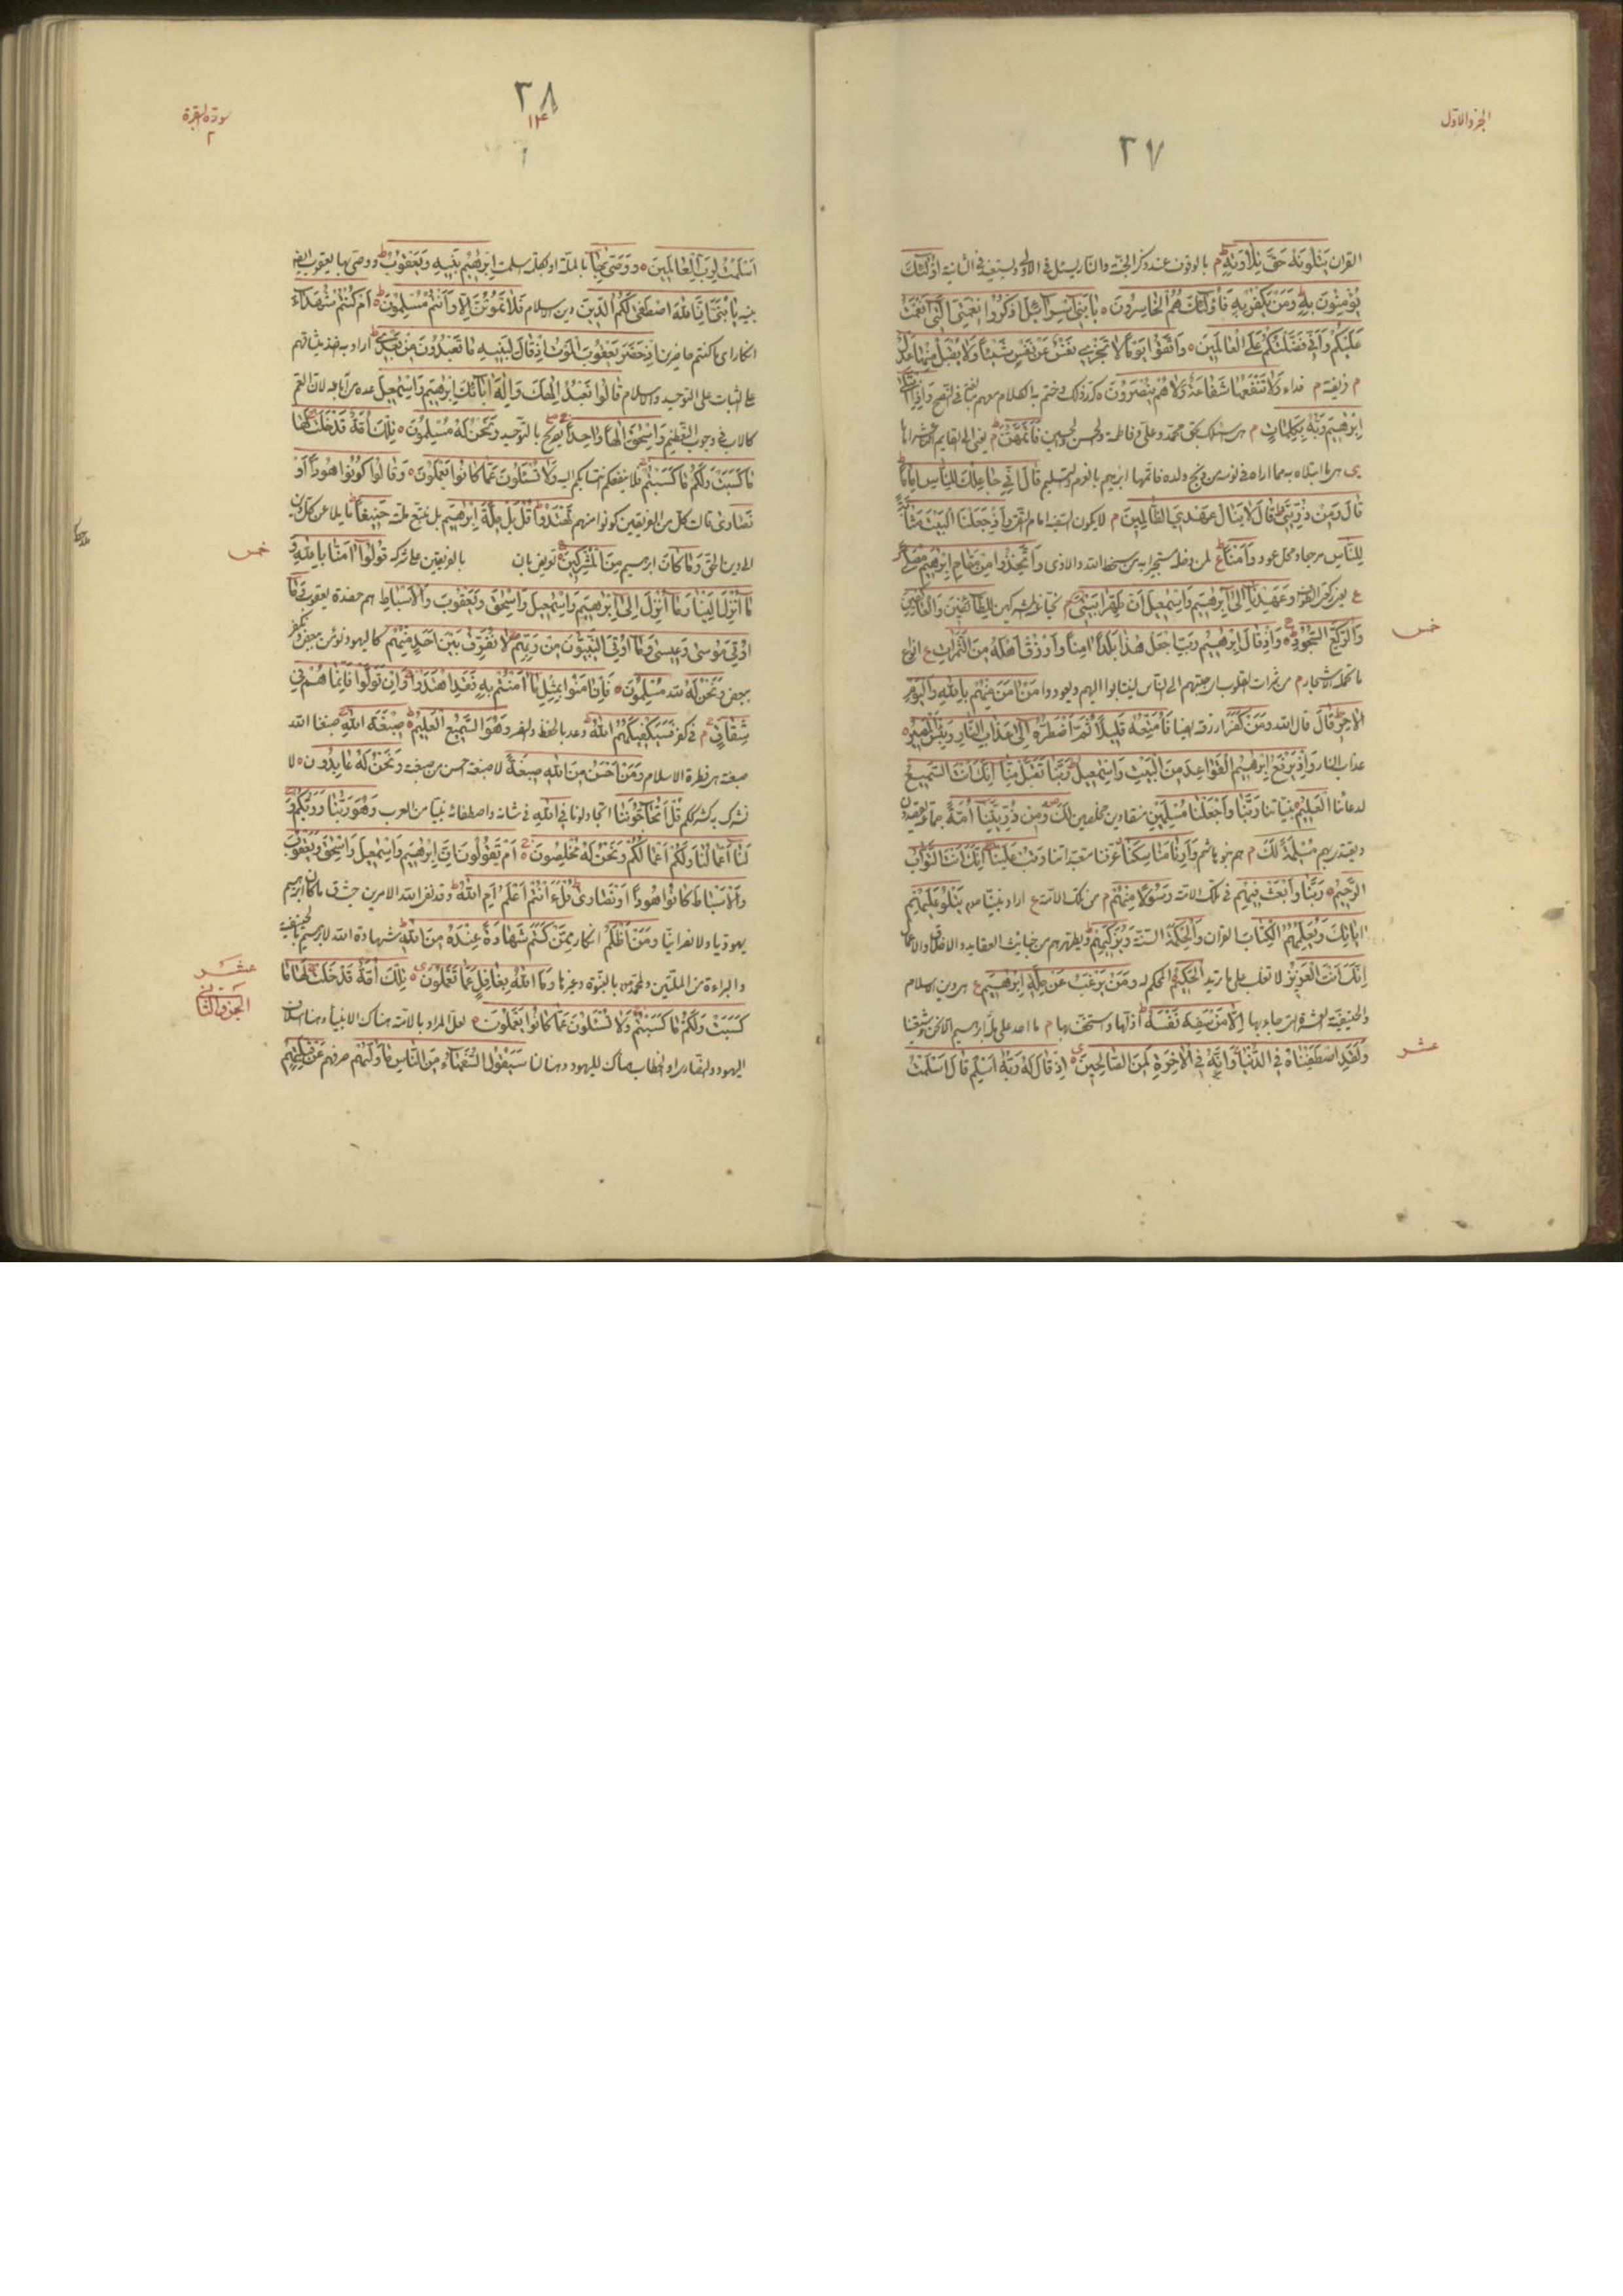 الجزء الاول
٢٧
القران يَتْلُونَهُ حَقَّ تِلَاوَتِهِ م بالوقوف عند ذكر الجنة والنار يسئل في الاولى ويستعيذ في الثانية اُولٰئِكَ
يُؤْمِنُونَ بِهِ وَمَنْ يَكْفُرْ بِهِ فَاُولٰئِكَ هُمُ الْخَاسِرُونَ يَا بَنِي اِسْرَائِيلَ اذْكُرُوا نِعْمَتِيَ الَّتِي اَنْعَمْتُ
عَلَيْكُمْ وَاَنِّي فَضَّلْتُكُمْ عَلَى الْعَالَمِينَ وَاتَّقُوا يَوْمًا لَا تَجْزِي نَفْسٌ عَنْ نَفْسٍ شَيْئًا وَلَا يُقْبَلُ مِنْهَا عَدْلٌ
م فريضة م فداء وَلَا تَنْفَعُهَا شَفَاعَةٌ وَلَا هُمْ يُنْصَرُونَ كرر ذلك وختم به الكلام معهم مبالغة في النصح وَاِذِ ابْتَلٰى
اِبْرٰهِيمَ رَبُّهُ بِكَلِمَاتٍ م بحق محمد وعلي وفاطمة والحسن والحسين فَاَتَمَّهُنَّ م يعني الى القايم
ابتلاه به مما اراه في نومه من ذبح ولده فاتمها ابرهيم بالعزم والتسليم قَالَ اِنِّي جَاعِلُكَ لِلنَّاسِ اِمَامًا
قَالَ وَمِنْ ذُرِّيَّتِي قَالَ لَا يَنَالُ عَهْدِي الظَّالِمِينَ م لا يكون السفيه امام التقي وَاِذْ جَعَلْنَا الْبَيْتَ مَثَابَةً
لِلنَّاسِ مرجعا ومحل عود وَاَمْنًا لمن دخله مستجيرا به من سخط الله والاذى وَاتَّخِذُوا مِنْ مَقَامِ اِبْرٰهِيمَ مُصَلًّى
وَعَهِدْنَا اِلٰى اِبْرٰهِيمَ وَاِسْمٰعِيلَ اَنْ طَهِّرَا بَيْتِيَ م نحيا عنه المشركين لِلطَّائِفِينَ وَالْعَاكِفِينَ
وَالرُّكَّعِ السُّجُودِ وَاِذْ قَالَ اِبْرٰهِيمُ رَبِّ اجْعَلْ هٰذَا بَلَدًا اٰمِنًا وَارْزُقْ اَهْلَهُ مِنَ الثَّمَرَاتِ ع انواع
ما تحمله الاشجار م من ثمرات القلوب اي حببهم الى الناس لينتابوا اليهم ويعودوا مَنْ اٰمَنَ مِنْهُمْ بِاللهِ وَالْيَوْمِ
الْاٰخِرِ قَالَ قال الله وَمَنْ كَفَرَ ارزقه ايضا فَاُمَتِّعُهُ قَلِيلًا ثُمَّ اَضْطَرُّهُ اِلٰى عَذَابِ النَّارِ وَبِئْسَ الْمَصِيرُ
عذاب النار وَاِذْ يَرْفَعُ اِبْرٰهِيمُ الْقَوَاعِدَ مِنَ الْبَيْتِ وَاِسْمٰعِيلُ رَبَّنَا تَقَبَّلْ مِنَّا اِنَّكَ اَنْتَ السَّمِيعُ
لدعائنا الْعَلِيمُ بنياتنا رَبَّنَا وَاجْعَلْنَا مُسْلِمَيْنِ منقادين مخلصين لَكَ وَمِنْ ذُرِّيَّتِنَا اُمَّةً جماعة
مُسْلِمَةً لَكَ م هم بنو هاشم وَاَرِنَا مَنَاسِكَنَا عرفنا متعبداتنا وَتُبْ عَلَيْنَا اِنَّكَ اَنْتَ التَّوَّابُ
الرَّحِيمُ رَبَّنَا وَابْعَثْ فِيهِمْ في تلك الامة رَسُولًا مِنْهُمْ م من تلك الامة ع اراد نبينا ص يَتْلُو عَلَيْهِمْ
اٰيَاتِكَ وَيُعَلِّمُهُمُ الْكِتَابَ القران وَالْحِكْمَةَ السنة وَيُزَكِّيهِمْ ويطهرهم من خبائث العقايد والاخلاق والاعمال
اِنَّكَ اَنْتَ الْعَزِيزُ لا تغلب على ما تريد الْحَكِيمُ المحكم له وَمَنْ يَرْغَبُ عَنْ مِلَّةِ اِبْرٰهِيمَ ع هي دين الاسلام
والحنيفية العشرة التي جاء بها اِلَّا مَنْ سَفِهَ نَفْسَهُ اذلها واستخف بها م ما احد على ملة ابرهيم الا نحن وشيعتنا
وَلَقَدِ اصْطَفَيْنَاهُ فِي الدُّنْيَا وَاِنَّهُ فِي الْاٰخِرَةِ لَمِنَ الصَّالِحِينَ اِذْ قَالَ لَهُ رَبُّهُ اَسْلِمْ قَالَ اَسْلَمْتُ
خمس
عشر
سورة البقرة
٢
٣٨
اَسْلَمْتُ لِرَبِّ الْعَالَمِينَ وَوَصّٰى بِهَا بالملة او بكلمة اسلمت اِبْرٰهِيمُ بَنِيهِ وَيَعْقُوبُ ووصى بها يعقوب ايضا
بنيه يَا بَنِيَّ اِنَّ اللهَ اصْطَفٰى لَكُمُ الدِّينَ دين الاسلام فَلَا تَمُوتُنَّ اِلَّا وَاَنْتُمْ مُسْلِمُونَ اَمْ كُنْتُمْ شُهَدَاءَ
انكار اي ما كنتم حاضرين اِذْ حَضَرَ يَعْقُوبَ الْمَوْتُ اِذْ قَالَ لِبَنِيهِ مَا تَعْبُدُونَ مِنْ بَعْدِي اراد به اخذ ميثاقهم
على الثبات على التوحيد والاسلام قَالُوا نَعْبُدُ اِلٰهَكَ وَاِلٰهَ اٰبَائِكَ اِبْرٰهِيمَ وَاِسْمٰعِيلَ عده من آبائه لان العم
كالاب في وجوب التعظيم وَاِسْحٰقَ اِلٰهًا وَاحِدًا تصريح بالتوحيد وَنَحْنُ لَهُ مُسْلِمُونَ تِلْكَ اُمَّةٌ قَدْ خَلَتْ لَهَا
مَا كَسَبَتْ وَلَكُمْ مَا كَسَبْتُمْ فلا ينفعكم انتسابكم اليه وَلَا تُسْئَلُونَ عَمَّا كَانُوا يَعْمَلُونَ وَقَالُوا كُونُوا هُودًا اَوْ
نَصَارٰى قالت كل من الفريقين كونوا منهم تَهْتَدُوا قُلْ بَلْ مِلَّةَ اِبْرٰهِيمَ بل نتبع ملته حَنِيفًا مايلا عن كل دين
الى دين الحق وَمَا كَانَ ابرهيم مِنَ الْمُشْرِكِينَ تعريض بان بالفريقين على شركه قُولُوا اٰمَنَّا بِاللهِ وَ
مَا اُنْزِلَ اِلَيْنَا وَمَا اُنْزِلَ اِلٰى اِبْرٰهِيمَ وَاِسْمٰعِيلَ وَاِسْحٰقَ وَيَعْقُوبَ وَالْاَسْبَاطِ هم حفدة يعقوب وَمَا
اُوتِيَ مُوسٰى وَعِيسٰى وَمَا اُوتِيَ النَّبِيُّونَ مِنْ رَبِّهِمْ لَا نُفَرِّقُ بَيْنَ اَحَدٍ مِنْهُمْ كاليهود نؤمن ببعض ونكفر
ببعض وَنَحْنُ لَهُ لله مُسْلِمُونَ فَاِنْ اٰمَنُوا بِمِثْلِ مَا اٰمَنْتُمْ بِهِ فَقَدِ اهْتَدَوْا وَاِنْ تَوَلَّوْا فَاِنَّمَا هُمْ فِي
شِقَاقٍ م في كفر فَسَيَكْفِيكَهُمُ اللهُ وعد بالحفظ والنصر وَهُوَ السَّمِيعُ الْعَلِيمُ صِبْغَةَ اللهِ صبغنا الله
صبغته هي فطرة الاسلام وَمَنْ اَحْسَنُ مِنَ اللهِ صِبْغَةً لا صبغة احسن من صبغته وَنَحْنُ لَهُ عَابِدُونَ لا
نشرك به كشرككم قُلْ اَتُحَاجُّونَنَا اتجادلوننا فِي اللهِ في شانه واصطفائه نبيا من العرب وَهُوَ رَبُّنَا وَرَبُّكُمْ وَ
لَنَا اَعْمَالُنَا وَلَكُمْ اَعْمَالُكُمْ وَنَحْنُ لَهُ مُخْلِصُونَ اَمْ تَقُولُونَ اِنَّ اِبْرٰهِيمَ وَاِسْمٰعِيلَ وَاِسْحٰقَ وَيَعْقُوبَ
وَالْاَسْبَاطَ كَانُوا هُودًا اَوْ نَصَارٰى قُلْ ءَاَنْتُمْ اَعْلَمُ اَمِ اللهُ وقد نفى الله الامرين حيث ق ما كان ابرهيم
يهوديا ولا نصرانيا وَمَنْ اَظْلَمُ انكار مِمَّنْ كَتَمَ شَهَادَةً عِنْدَهُ مِنَ اللهِ شهادة الله لابرهيم بالحنيفية
والبراءة من الملتين ولمحمد ص بالنبوة وغيرها وَمَا اللهُ بِغَافِلٍ عَمَّا تَعْمَلُونَ تِلْكَ اُمَّةٌ قَدْ خَلَتْ لَهَا مَا
كَسَبَتْ وَلَكُمْ مَا كَسَبْتُمْ وَلَا تُسْئَلُونَ عَمَّا كَانُوا يَعْمَلُونَ لعل المراد بالامة هناك الانبياء وهنا اسلاف
اليهود والنصارى او الخطاب هناك لليهود وهنا لنا سَيَقُولُ السُّفَهَاءُ مِنَ النَّاسِ مَا وَلّٰيهُمْ صرفهم عَنْ قِبْلَتِهِمُ
خمس
عشر
الجزء الثاني